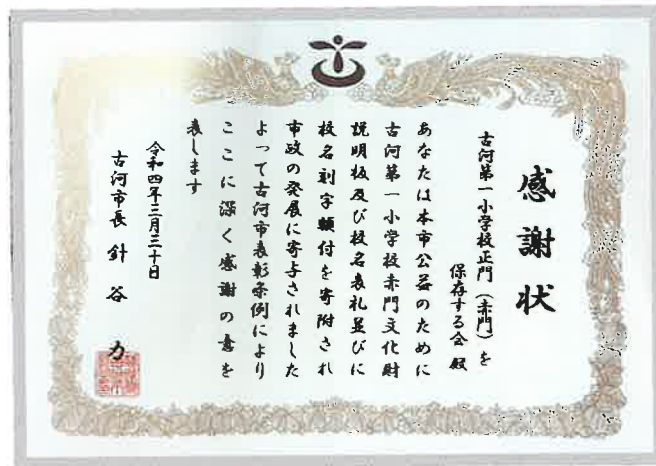 感謝状
古河第一小学校正門（赤門）を
保存する会 殿
あなたは本市公益のために
古河第一小学校赤門文化財
説明板及び校名表札並びに
校名刻字額付を寄附され
市政の発展に寄与されました
よって古河市表彰条例により
ここに深く感謝の意を
表します
令和四年三月三十日
古河市長 針谷 力